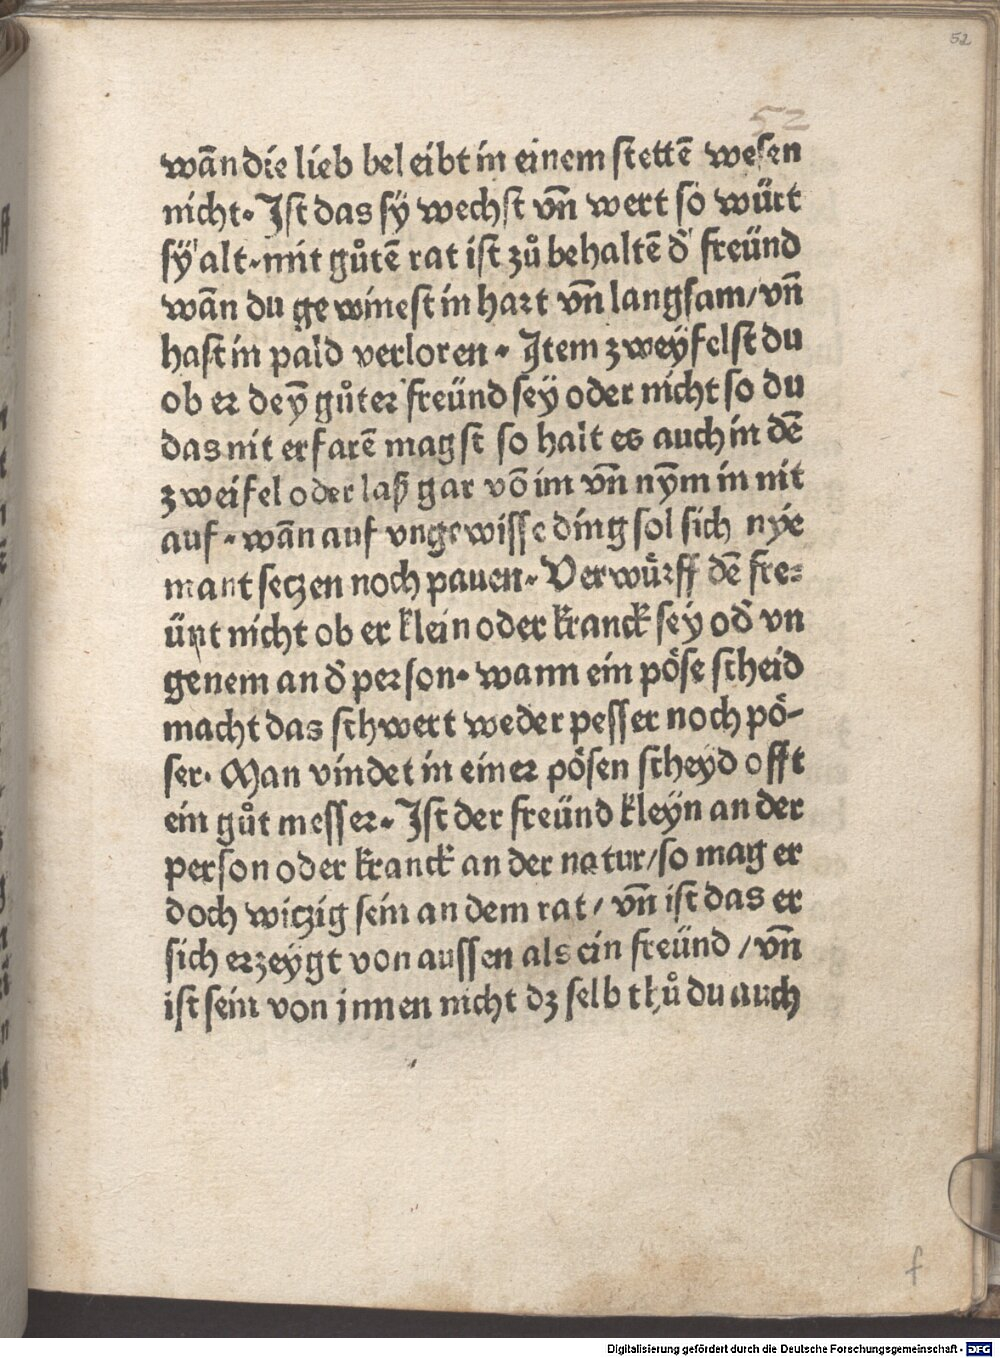 52
52
wān die lieb beleibt in einem stettē wesen
nicht. Ist das sÿ wechst vn̄ wert so wuͤrt
sÿ alt. mit guͦtē rat ist zuͦ behaltē d' freünd
wān du gewinest in hart vn̄ langsam/ vn̄
hast in pald verloren. Item zweÿfelst du
ob er deȳ guͦter freünd seÿ oder nicht so du
das nit erfarē magst so halt es auch in dē
zweifel oder laß gar vō im vn̄ nȳm in nit
auf. wān auf vngewisse ding sol sich nÿe
mant setzen noch pauen. Verwuͤrff dē fre⸗
ünt nicht ob er klein oder kranck seÿ od' vn
genem an d' person. wann ein poͤse scheid
macht das schwert weder pesser noch poͤ-
ser. Man vindet in einer poͤsen scheyd offt
ein guͦt messer. Ist der freünd kleÿn an der
person oder kranck an der natur/ so mag er
doch witzig sein an dem rat/ vn̄ ist das er
sich erzeÿgt von aussen als ein freünd / vn̄
ist sein von jnnen nicht dz selb thuͦ du auch
f
Digitalisierung gefördert durch die Deutsche Forschungsgemeinschaft - DFG